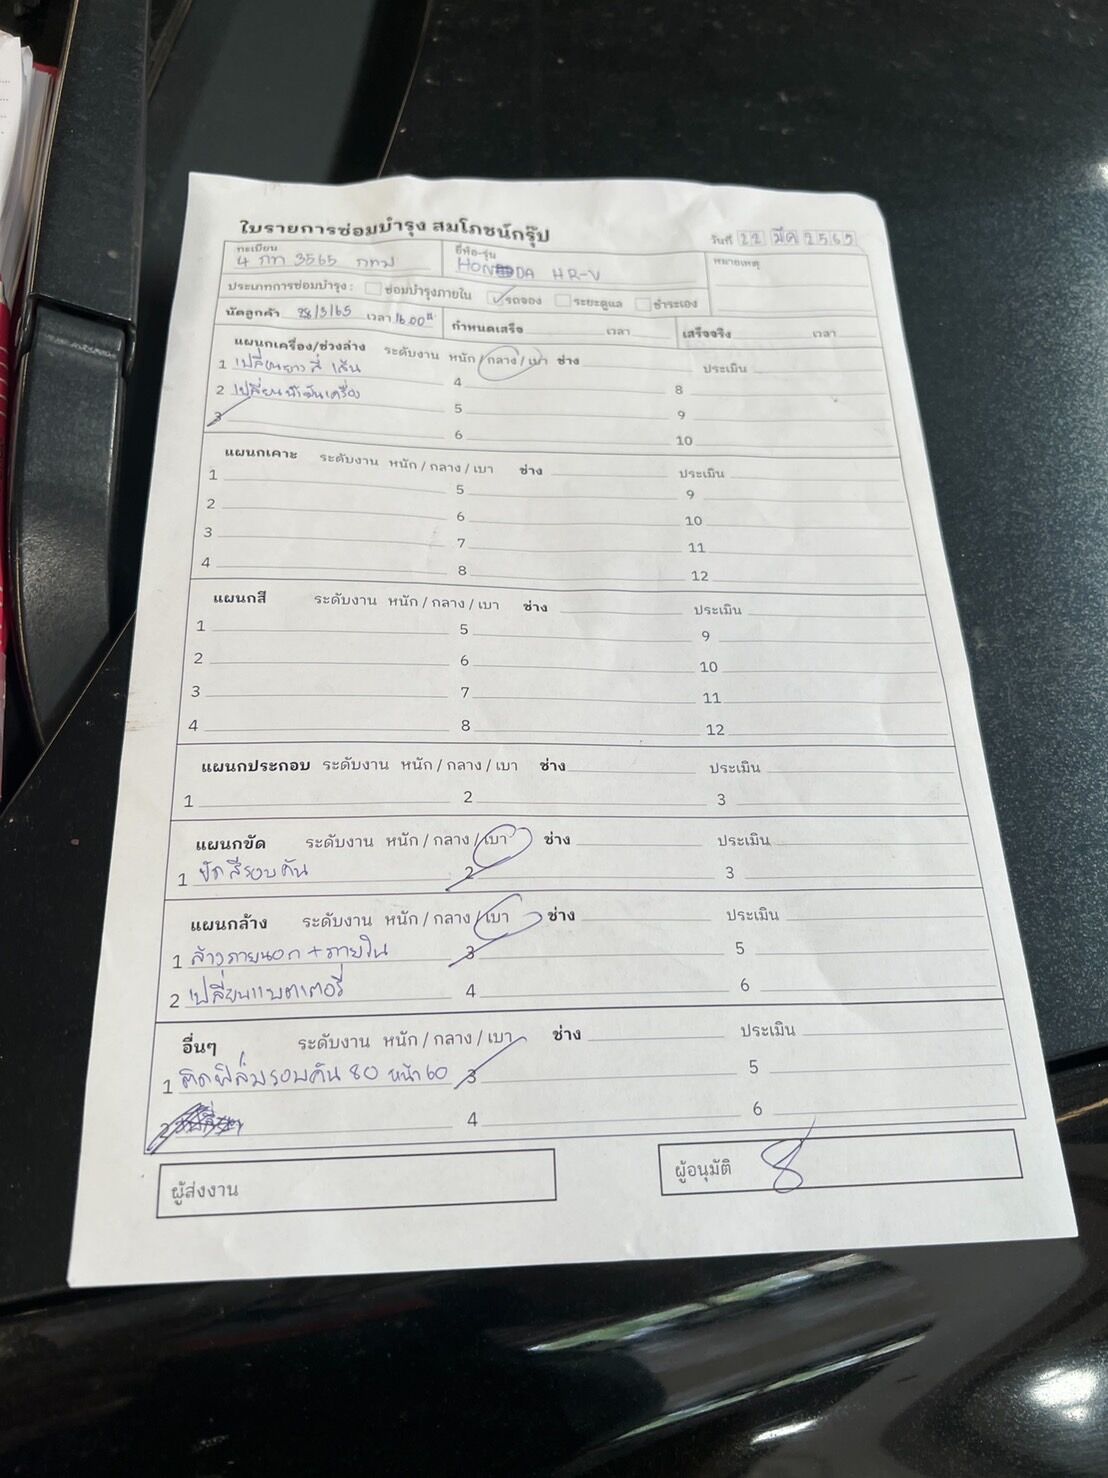 ใบรายการซ่อมบำรุง สมโภชน์กรุ๊ป
วันที่ 22 มีค 2565
ทะเบียน 4 กท 3565 กทม
ยี่ห้อ-รุ่น HONDA HR-V
หมายเหตุ
ประเภทการซ่อมบำรุง : ซ่อมบำรุงภายใน ✓ รถจอง ระยะดูแล ชำระเอง
นัดลูกค้า 28/3/65 เวลา 16.00 น กำหนดเสร็จ เวลา เสร็จจริง เวลา
แผนกเครื่อง/ช่วงล่าง ระดับงาน หนัก / กลาง / เบา ช่าง ประเมิน
1 เปลี่ยนยาง สี่ เส้น 4 8
2 เปลี่ยนน้ำมันเครื่อง 5 9
3 6 10
แผนกเคาะ ระดับงาน หนัก / กลาง / เบา ช่าง ประเมิน
1 5 9
2 6 10
3 7 11
4 8 12
แผนกสี ระดับงาน หนัก / กลาง / เบา ช่าง ประเมิน
1 5 9
2 6 10
3 7 11
4 8 12
แผนกประกอบ ระดับงาน หนัก / กลาง / เบา ช่าง ประเมิน
1 2 3
แผนกขัด ระดับงาน หนัก / กลาง / เบา ช่าง ประเมิน
1 ขัดสีรอบคัน 2 3
แผนกล้าง ระดับงาน หนัก / กลาง / เบา ช่าง ประเมิน
1 ล้างภายนอก + ภายใน 3 5
2 เปลี่ยนแบตเตอรี่ 4 6
อื่นๆ ระดับงาน หนัก / กลาง / เบา ช่าง ประเมิน
1 ติดฟิล์มรอบคัน 80 หน้า 60 3 5
2 4 6
ผู้ส่งงาน
ผู้อนุมัติ